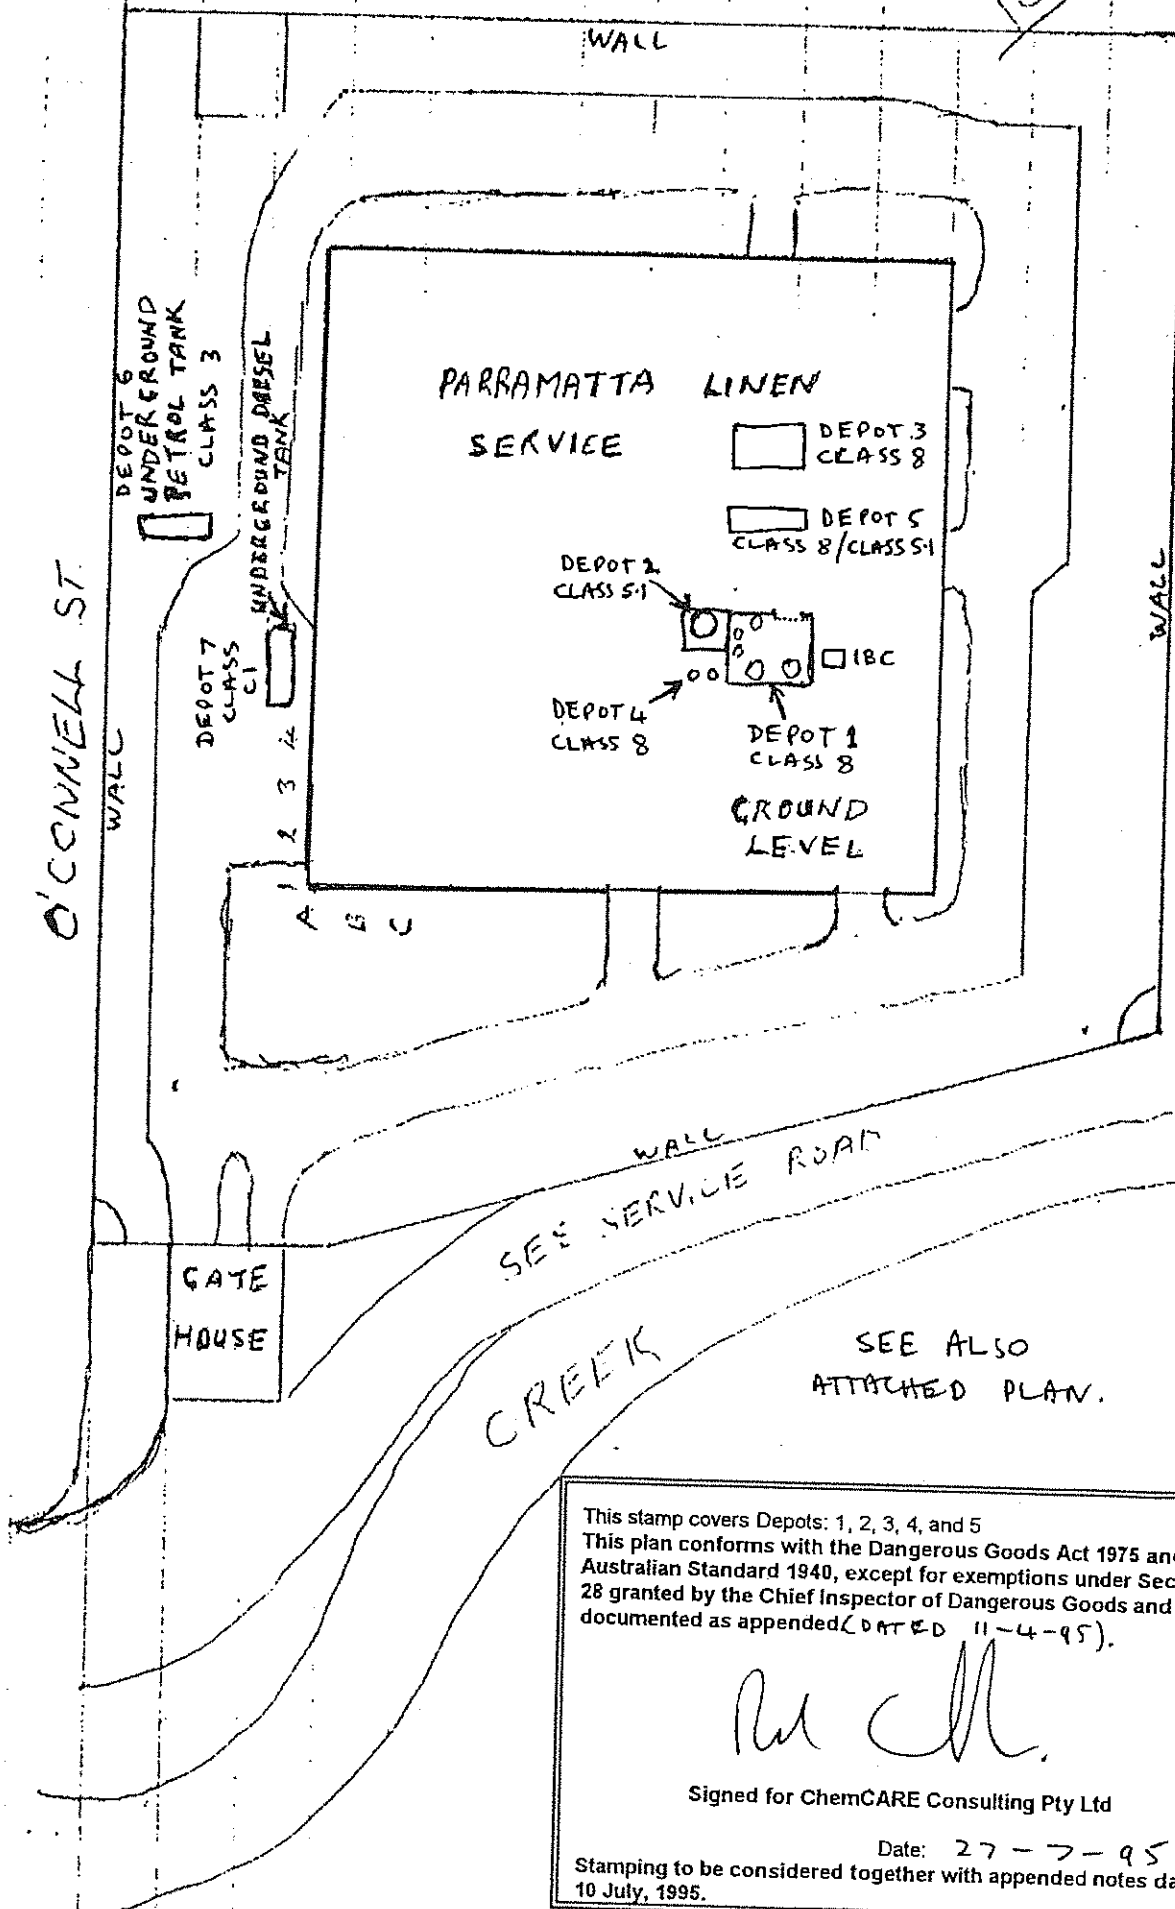 WALL
DEPOT 6
UNDERGROUND
PETROL TANK
CLASS 3
UNDERGROUND DIESEL
TANK
PARRAMATTA LINEN
SERVICE
DEPOT 3
CLASS 8
DEPOT 5
CLASS 8/CLASS 5.1
DEPOT 2
CLASS 5.1
IBC
DEPOT 4
CLASS 8
DEPOT 1
CLASS 8
GROUND
LEVEL
DEPOT 7
CLASS
C1
1 2 3 4
A B C
O'CONNELL ST.
WALL
WALL
WALL
SEE SERVICE ROAD
GATE
HOUSE
CREEK
SEE ALSO
ATTACHED PLAN.
This stamp covers Depots: 1, 2, 3, 4, and 5
This plan conforms with the Dangerous Goods Act 1975 an
Australian Standard 1940, except for exemptions under Sec
28 granted by the Chief Inspector of Dangerous Goods and
documented as appended (DATED 11-4-95).
Signed for ChemCARE Consulting Pty Ltd
Date: 27-7-95
Stamping to be considered together with appended notes da
10 July, 1995.